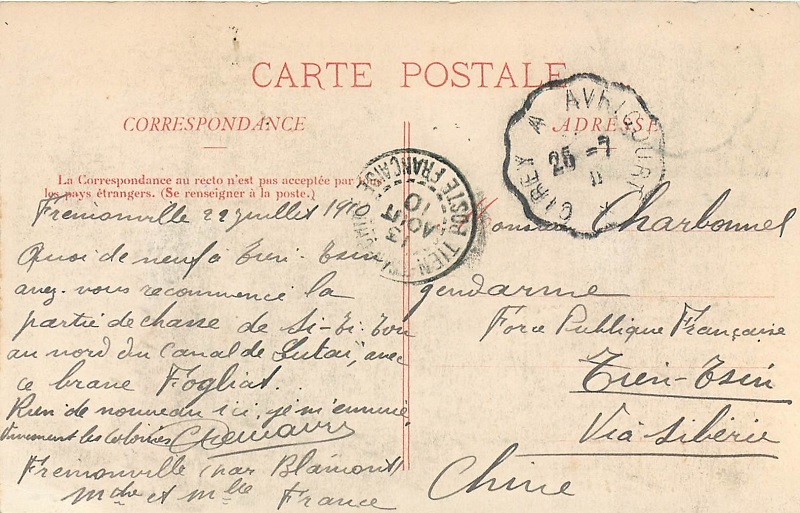 CARTE POSTALE
CORRESPONDANCE
La Correspondance au recto n'est pas acceptée par
les pays étrangers. (Se renseigner à la poste.)
Fremonville 22 juillet 1910
Quoi de neuf à Tien-Tsin
avez-vous recommencé la
partie de chasse de Si-Ti-Tou
au nord du Canal de Lutai, avec
ce brave Fogliat.
Rien de nouveau ici, je m'ennuie
Vivement les Colonies
Fremonville (par Blâmont)
Mthe et Mlle France
ADRESSE
Monsieur Charbonnel
gendarme
Force Publique Française
Tien-Tsin
Via Sibérie
Chine
CIREY A AVRICOURT
25 -7
TIEN-TSIN
POSTE FRANÇAISE
13
AOUT
10